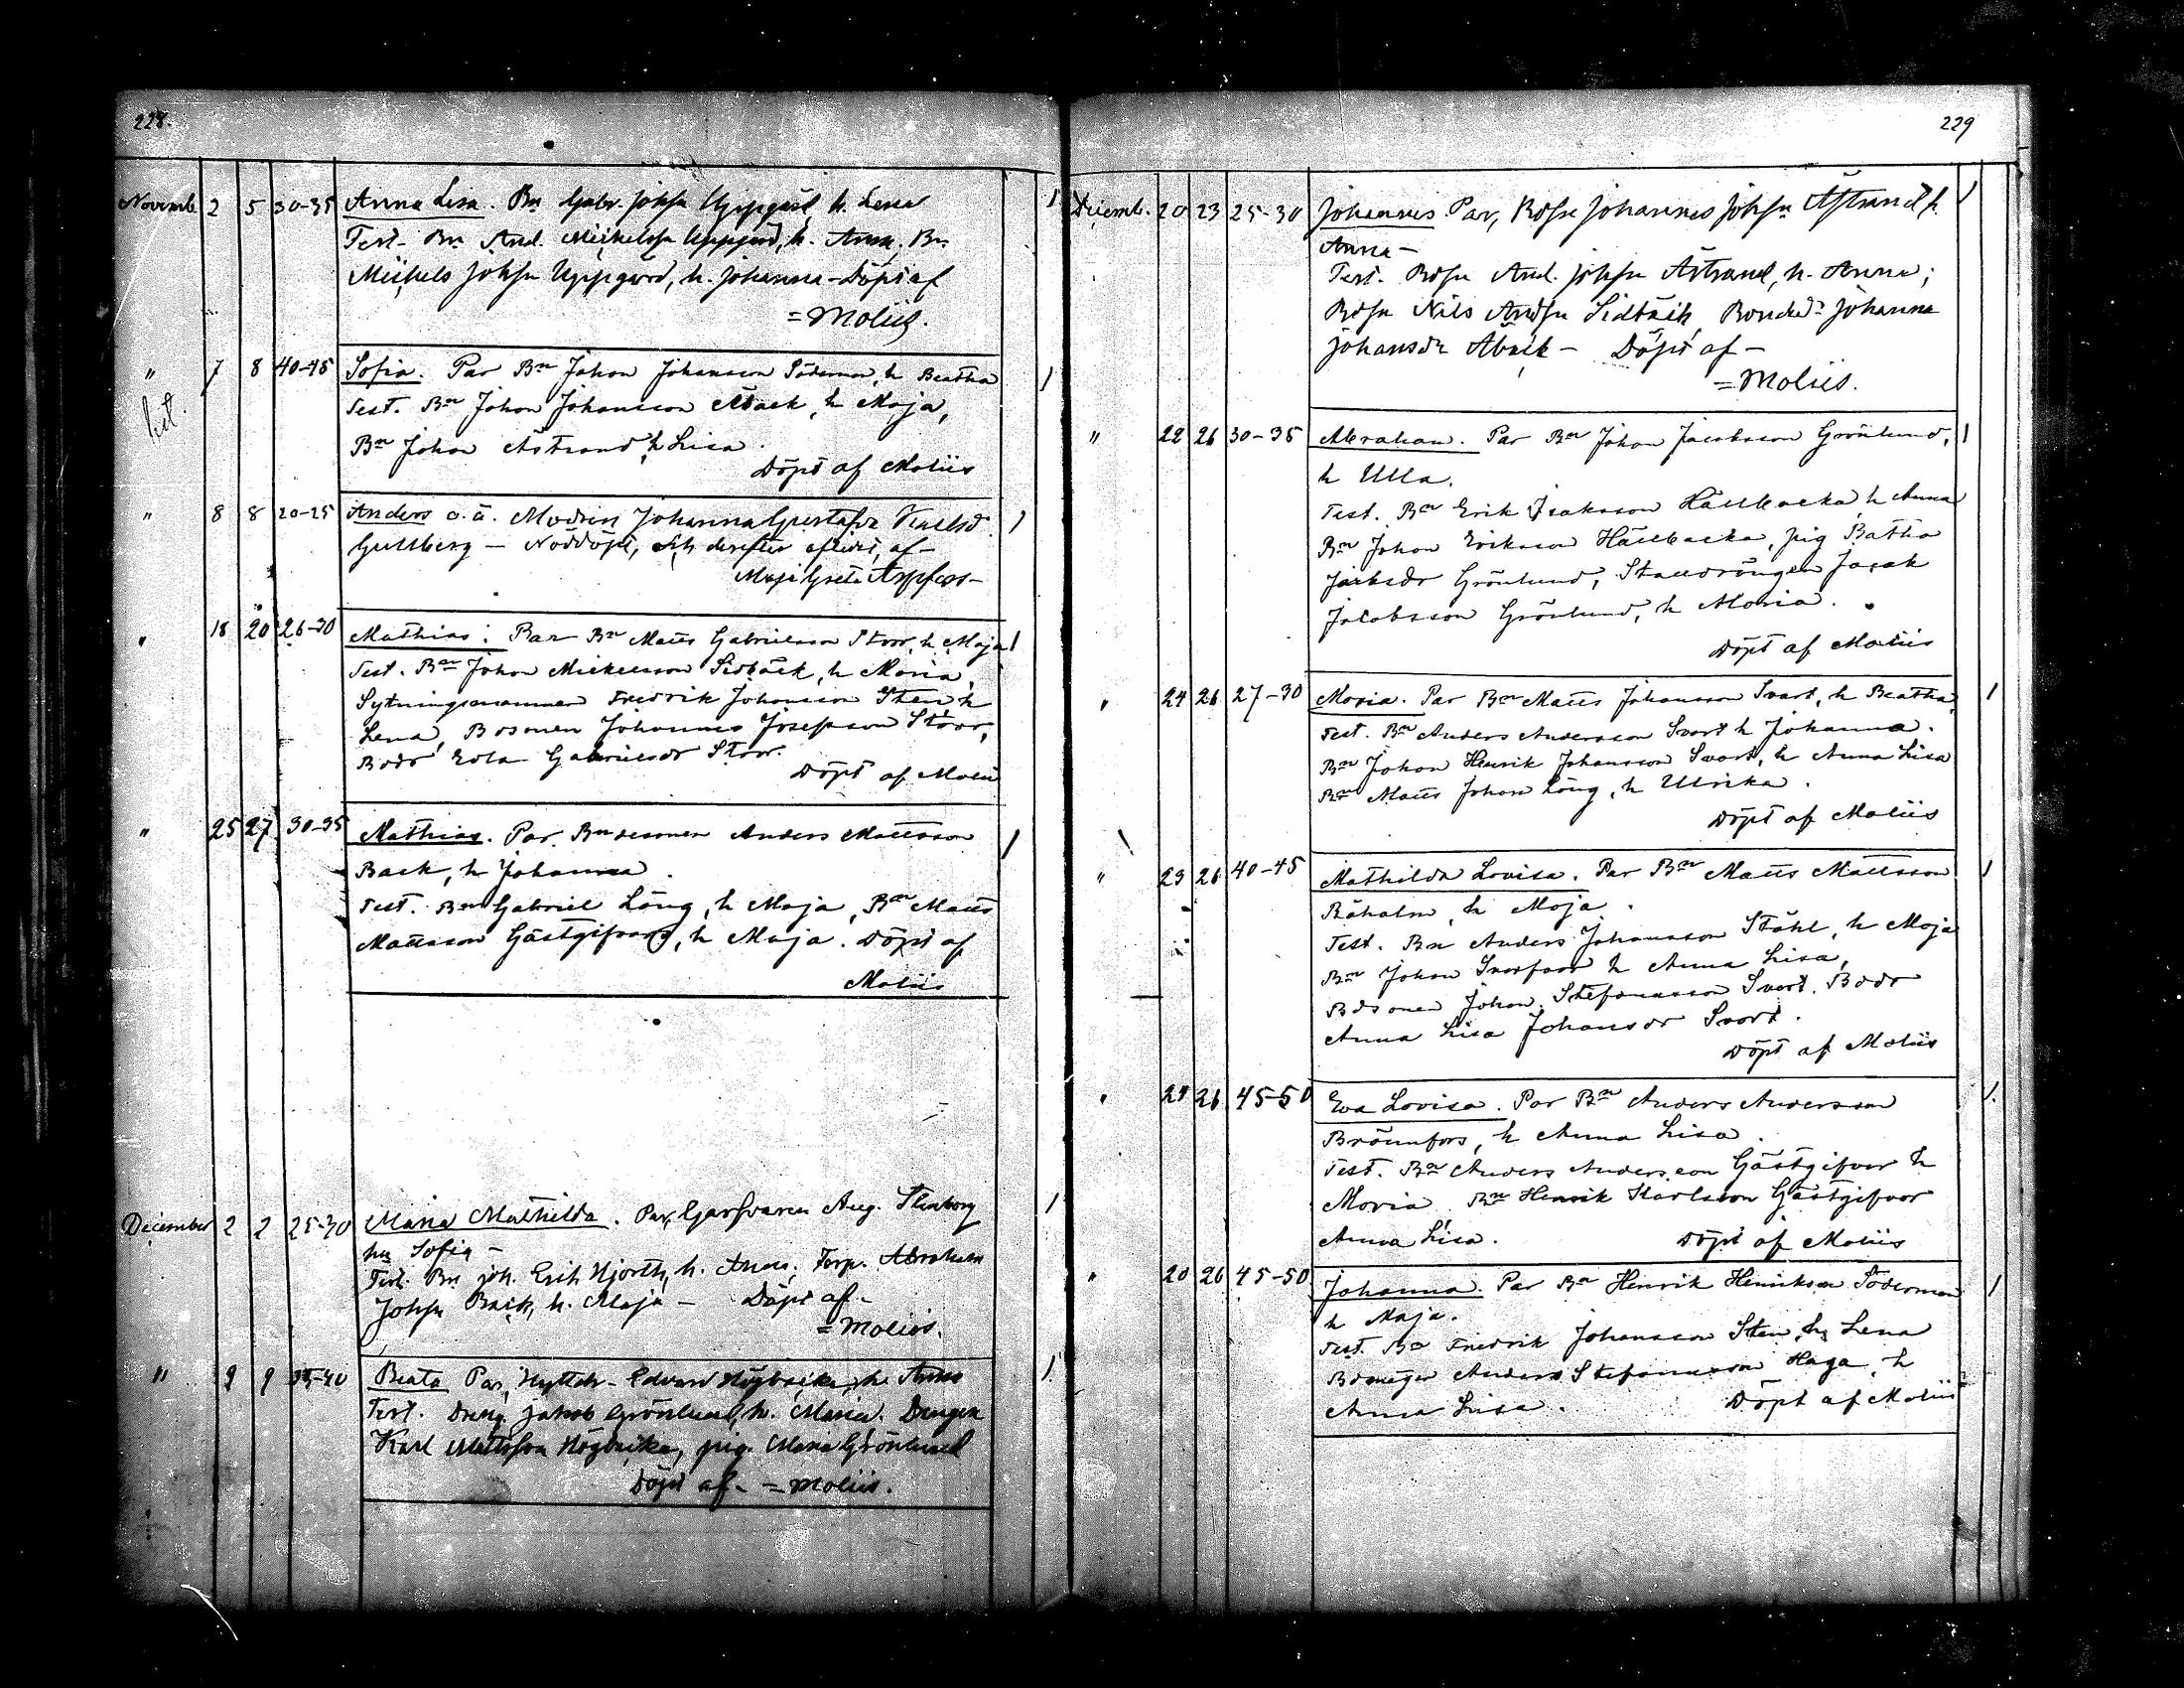 228.
Novemb. 2 5 30-35 Anna Lisa. Bn Gabr. Johsn Uppgård, h. Lena
Test. Bn And. Mickelsn Uppgård, h. Anna. Bn
Mickels Johsn Uppgård, h. Johanna - Döpt af
= Moliis.
" 7 8 40-45 Sofia. Par Bn Johan Johansson Söderman, h Beatha
Test. Bn Johan Johansson Åback, h Maja,
Bn Johan Åstrand, h Lisa.
Döpt af Moliis
" 8 8 20-25 Anders o.ä. Modren Johanna Gustafsdr
Gullberg - Nöddöpt, och derefter aflidit, af -
Maja Greta Aspfors -
" 18 20 26-30 Mathias. Par Bn Matts Gabrielsson Stoor, h Maja
Test. Bn Johan Mickelsson Sidbäck, h Maria,
Sytningsmannen Fredrik Johansson Sten h
Lena, Bosonen Johannes Josepsson Stoor,
Bodr Eva Gabrielsdr Stoor.
Döpt af Moliis
" 25 27 30-35 Mathias. Par. Bondesonen Anders Mattsson
Back, h Johanna.
Test. Bn Gabriel Lång, h Maja, Bn Matts
Mattsson Gästgifvars, h Maja. Döpt af
Moliis
December 2 2 25-30 Maria Mathilda. Par, Garfvaren Aug. Stenborg
hu Sofia -
Test. Bn Joh. Erik Hjorth, h. Anna, Torp. Abraham
Johsn Back, h. Maja - Döpt af -
= Moliis.
" 9 9 35-40 Beata Par, Edvard Högbacka, h. Anna
Test. Dreng. Jakob Grönlund, h. Maria. Drengen
Karl Mattsson Högbacka, pig. Maria Grönlund
Döpt af - = Moliis.
229
Decemb. 20 23 25-30 Johannes Par, Bdsn Johannes Johsn Åstrand h.
Anna -
Test. Bdsn And. Johsn Åstrand, h. Anna;
Bdsn Nils Andsn Sidbäck, Bonded: Johanna
Johansdr Åbäck - Döpt af -
= Moliis.
" 22 26 30-35 Abraham. Par Bn Johan Jacobsson Grönlund,
h Ulla.
Test. Bn Erik Isaksson Hällbacka, h Anna
Bn Johan Eriksson Hällbacka, pig Batha
Grönlund, Stalldrängen Jacob
Jacobsson Grönlund, h Maria.
Döpt af Moliis
" 24 26 27-30 Maria. Par Bn Matts Johansson Svart, h Beatha,
Test. Bn Anders Andersson Svart h Johanna.
Bn Johan Henrik Johansson Svart, h Anna Lisa
Bn Matts Johan Lång, h Ulrika.
Döpt af Moliis
" 23 26 40-45 Mathilda Lovisa. Par Bn Matts Mattsson
Råholm, h Maja.
Test. Bn Anders Johansson Ståhl, h Maja
Bn Johan h Anna Lisa,
Bdsonen Johan Stefansson Svart. Bodr
Anna Lisa Johansdr Svart.
Döpt af Moliis
" 24 26 45-50 Eva Lovisa. Par Bn Anders Andersson
Brännfors, h Anna Lisa.
Test. Bn Anders Andersson Gästgifvar h
Maria. Bn Henrik Karlsson Gästgifvar
Anna Lisa. Döpt af Moliis
" 20 26 45-50 Johanna. Par Bn Henrik Henriksson Söderman
h Maja.
Test. Bn Fredrik Johansson Sten, h Lena
Anders Stefansson Haga, h
Anna Lisa. Döpt af Moliis